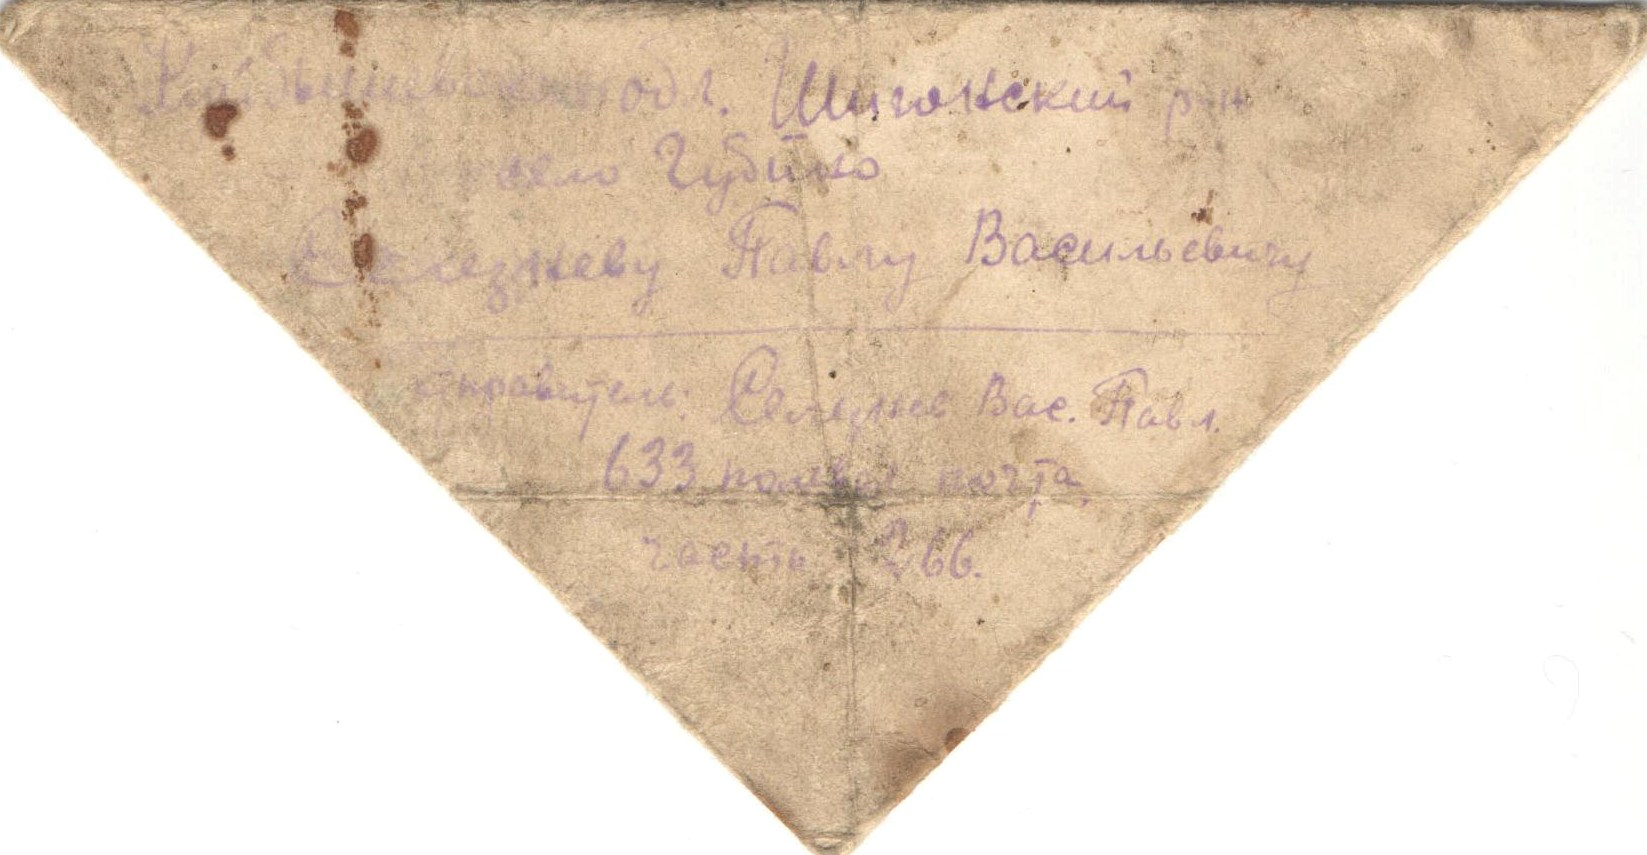 Куйбышевская обл. Шигонский р-н
село Губино
Селезневу Павлу Васильевичу
отправитель: Селезнев Вас. Павл.
633 полевая почта,
часть 266.